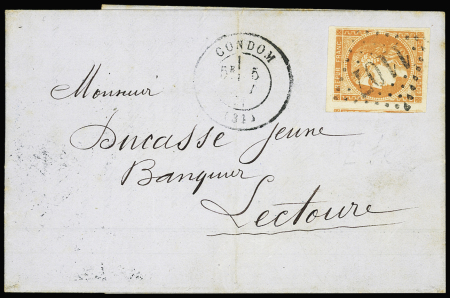 CONDOM
(31)
Monsieur
Ducasse Jeune
Banquier
Lectoure